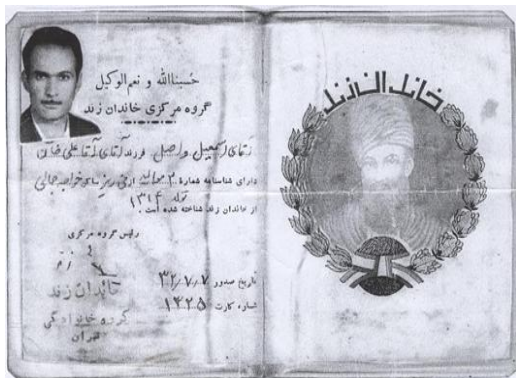 حسبناالله و نعم الوکیل
گروه مرکزی خاندان زند
آقای اسمعیل واصل فرزند آقای آقا علی خان
دارای شناسنامه شمارهٔ ۲
از خاندان زند شناخته شده است.
رئیس گروه مرکزی
تاریخ صدور ۳۲/۷/۷
شماره کارت ۱۴۲۵
خاندان زند
گروه خانوادگی
تهران
خاندان زند